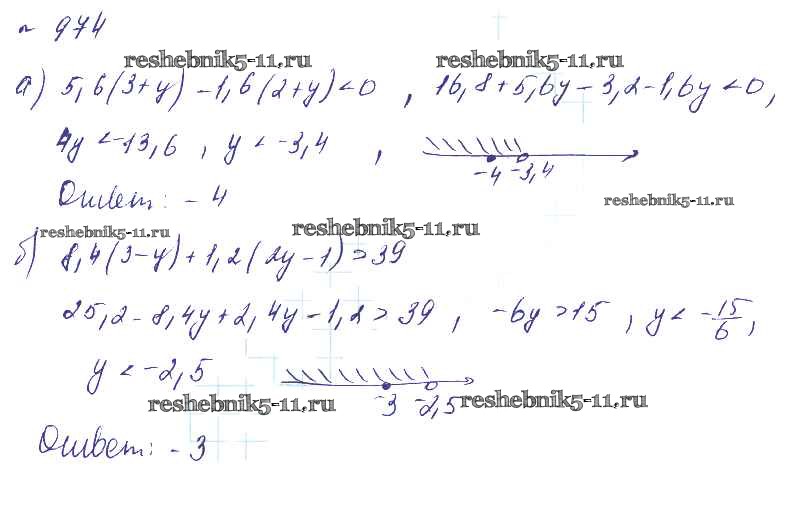 № 974
reshebnik5-11.ru reshebnik5-11.ru
а) 5,6(3+y)-1,6(2+y)<0, 16,8+5,6y-3,2-1,6y<0,
4y<-13,6, y<-3,4,
-4 -3,4
Ответ: -4 reshebnik5-11.ru
reshebnik5-11.ru reshebnik5-11.ru
б) 8,4(3-y)+1,2(2y-1)>39
25,2-8,4y+2,4y-1,2>39, -6y>15, y<-15/6,
y<-2,5
reshebnik5-11.ru -3 -2,5 reshebnik5-11.ru
Ответ: -3